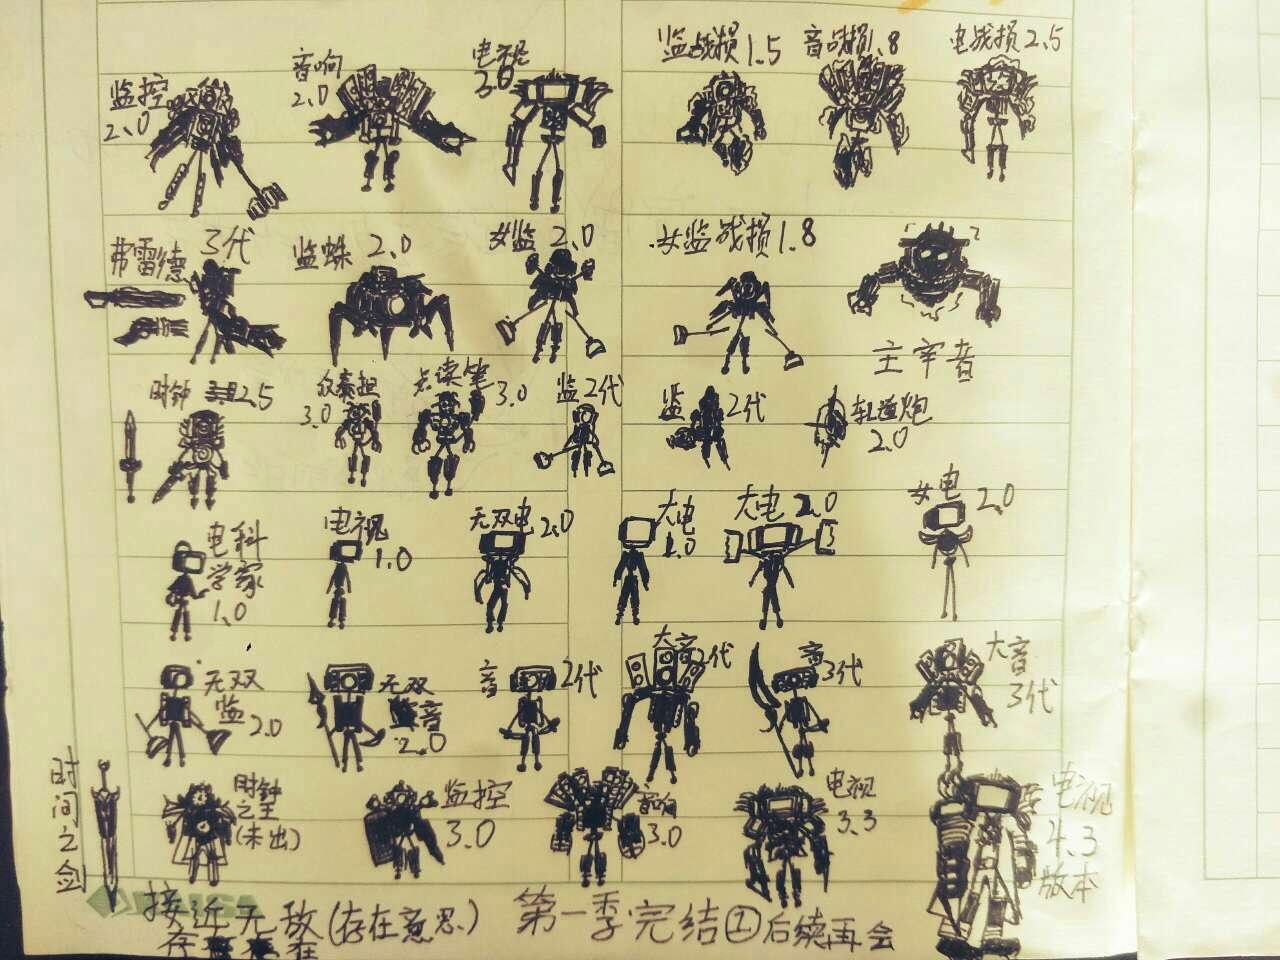 监控
2.0
音响
2.0
电视
3.0
监战损1.5
音战损1.8
电战损2.5
弗雷德 3代
监蛛 2.0
女监 2.0
女监战损1.8
主宰音
时钟 2.5
3.0
点读笔 3.0
监2代
监 2代
轨道炮
2.0
电科
学家
1.0
电视
1.0
无双电2.0
大电
1.0
大电 2.0
女电 2.0
无双
监 2.0
无双
监音
2.0
音 2代
大音2代
音
3代
大音
3代
时间之剑
时钟
之王
(未出)
监控
3.0
音响
3.0
电视
3.3
电视
4.3
版本
接近无敌(存在意思)
第一季完结①后续再会